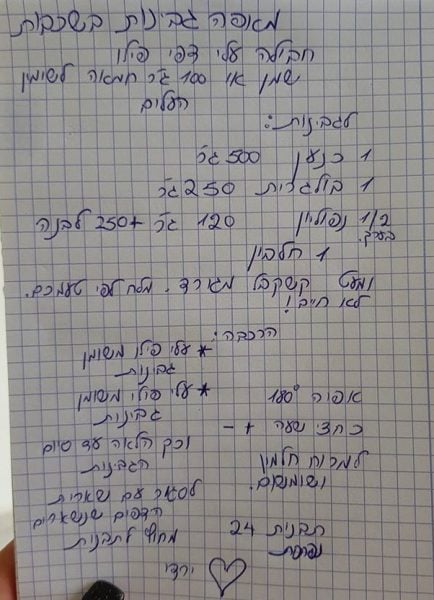 מאפה גבינות בשכבות
חבילה עלי דפי פילו
שמן או 100 גר׳ חמאה לשימון
העלים
לגבינות:
1 כנען 500 גר׳
1 בולגרית 250 גר׳
1/2 נפוליון 120 גר׳ + 250 לבנה
בערך.
1 חלבון
ומעט קשקבל מגורד. מלח לפי טעמכם.
לא חייב!
הרכבה:
* עלי פילו משומן
גבינות
* עלי פילו משומן
גבינות
וכך הלאה עד סיום
הגבינות
לסגור עם שארית
הדפים שנשארים
מחוץ לתבנית
אפיה 180°
כחצי שעה + -
למרוח חלמון
ושומשום.
תבנית 24
נפתחת
ירדי